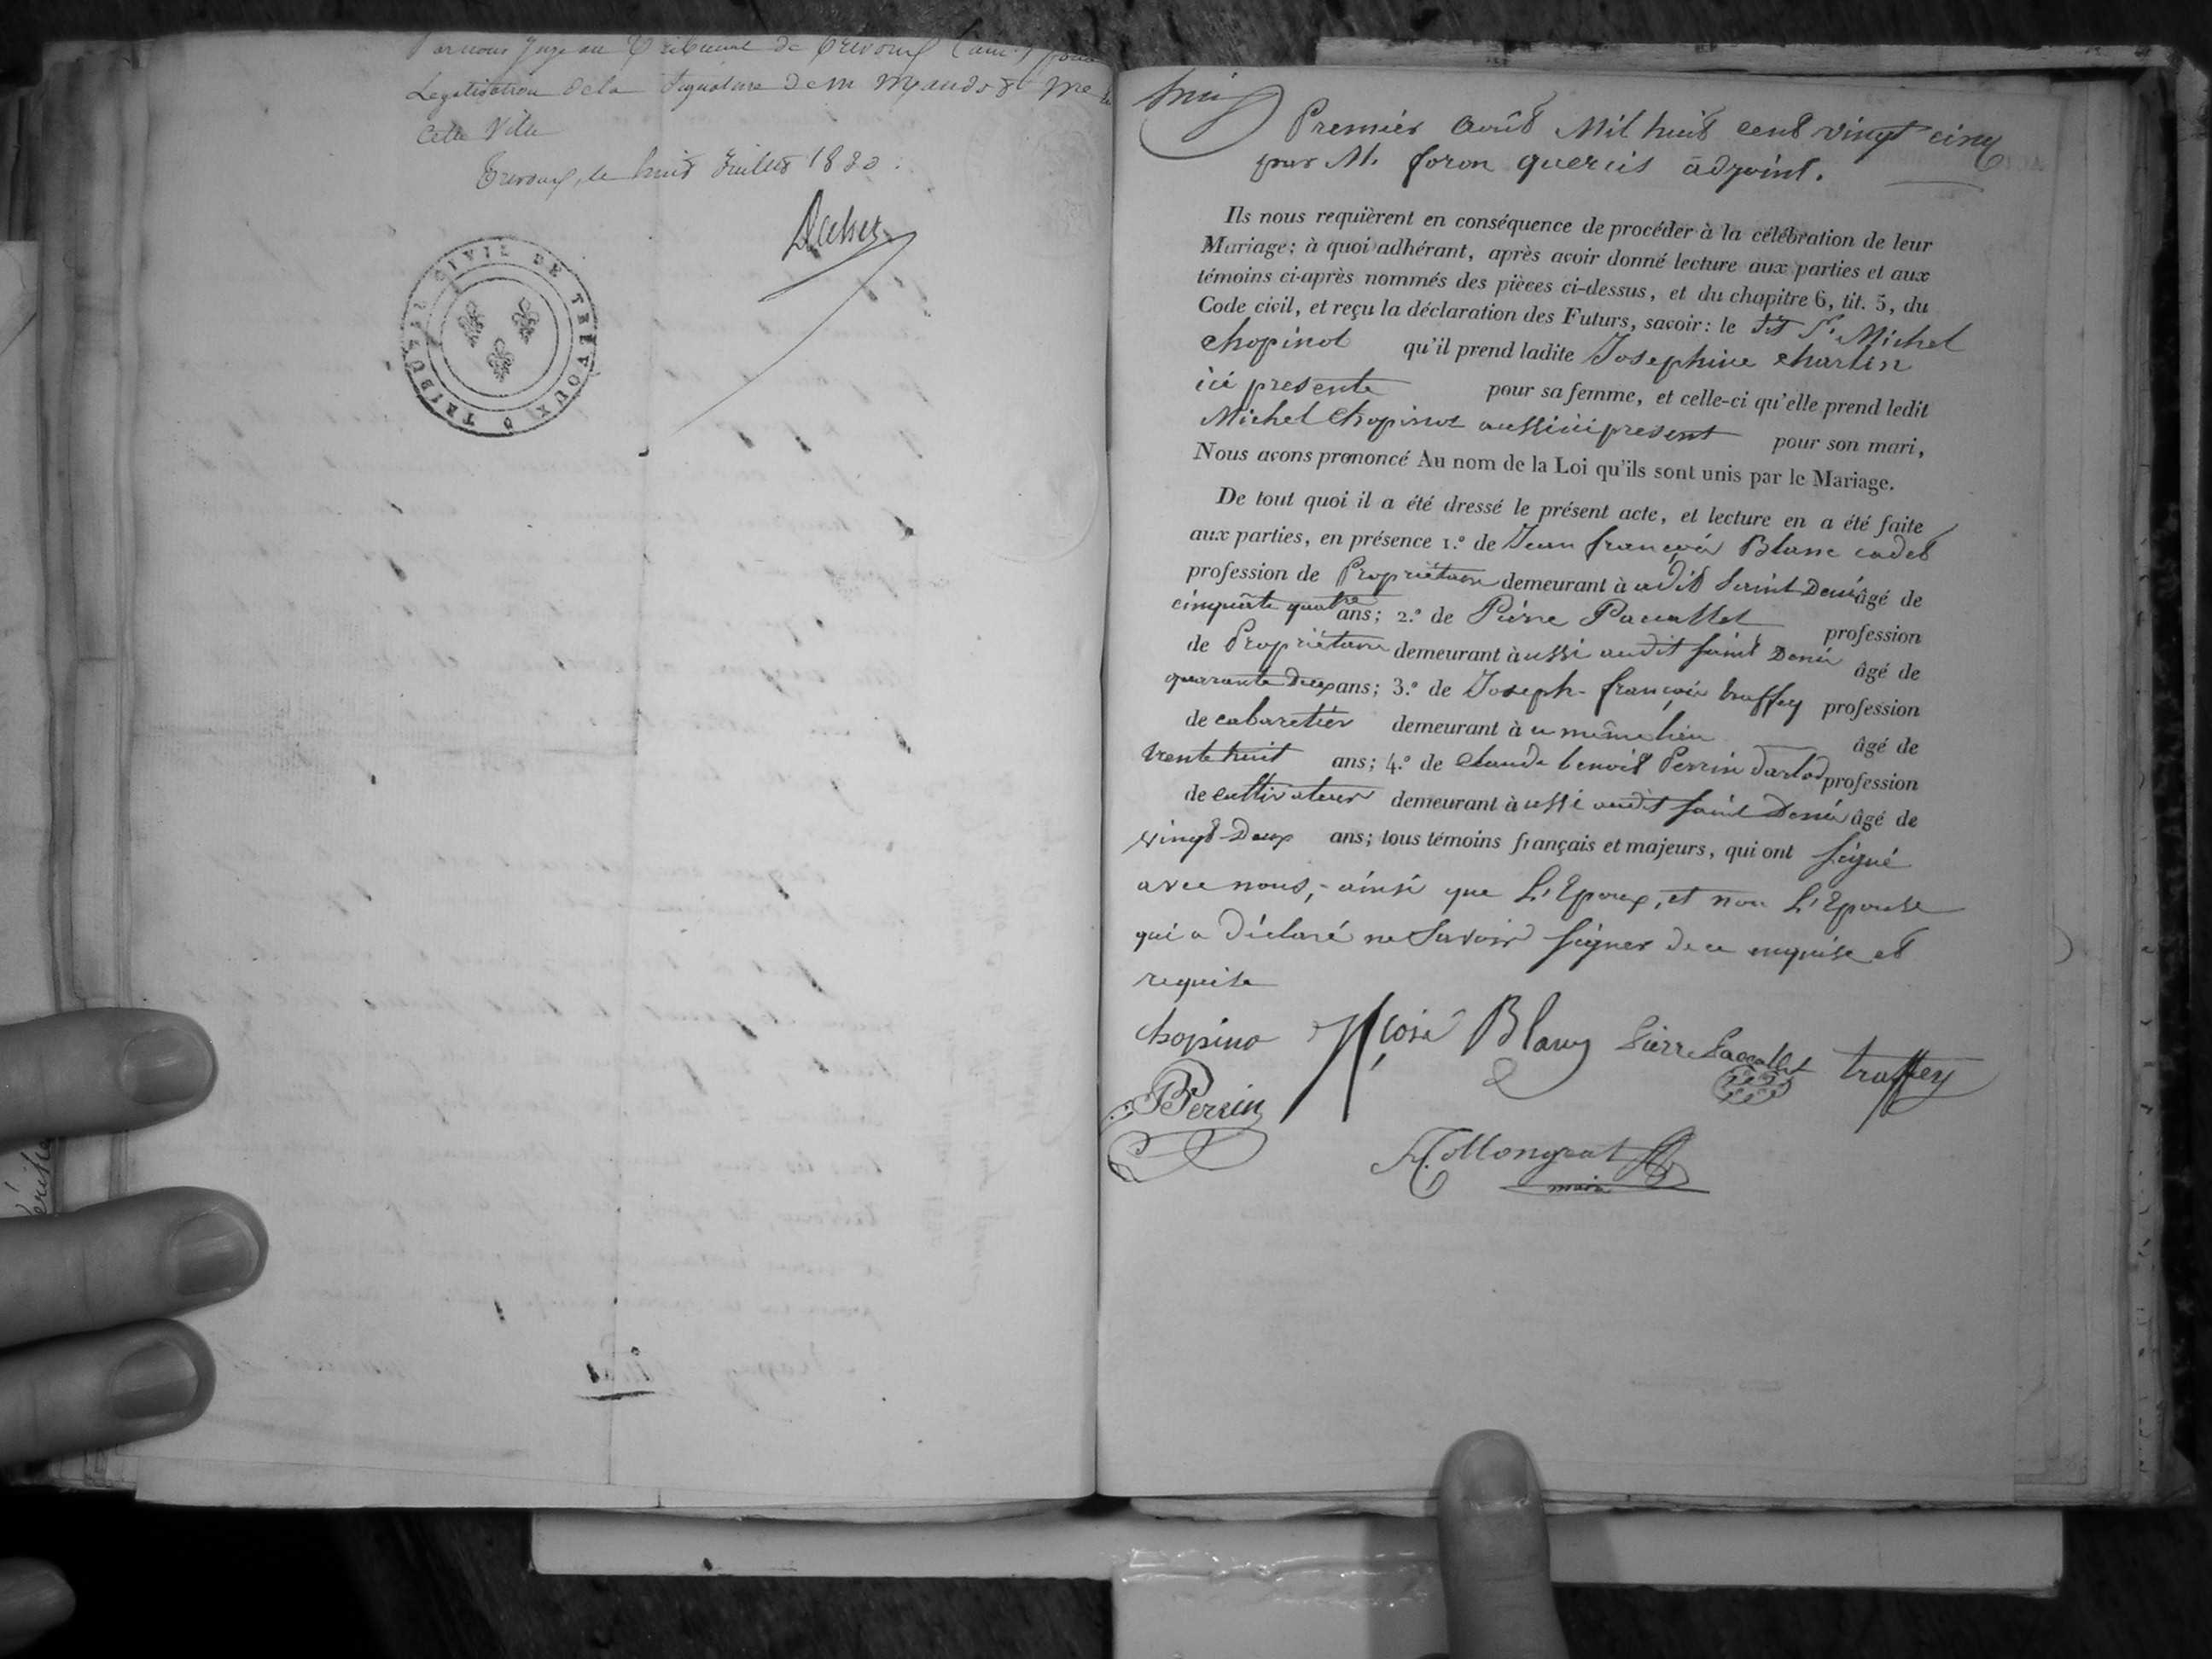 Par nous Juge au Tribunal de Trevoux (ain) pour
Legalisation de la Signature de M
Cette Ville
Trevoux, le huit Juillet 1830.
TRIBUNAL CIVIL DE TRÉVOUX
Premier août Mil huit cent vingt cinq
par M. foron quercis adjoint.
Ils nous requièrent en conséquence de procéder à la célébration de leur
Mariage; à quoi adhérant, après avoir donné lecture aux parties et aux
témoins ci-après nommés des pièces ci-dessus, et du chapitre 6, tit. 5, du
Code civil, et reçu la déclaration des Futurs, savoir: le dt Sr. Michel
chopinot qu'il prend ladite Josephine charlin
ici presente pour sa femme, et celle-ci qu'elle prend ledit
Michel Chopinot aussi ici present pour son mari,
Nous avons prononcé Au nom de la Loi qu'ils sont unis par le Mariage.
De tout quoi il a été dressé le présent acte, et lecture en a été faite
aux parties, en présence 1.º de Jean françois Blanc cadet
profession de Propriétaire demeurant à udit Saint Denis âgé de
cinquante quatre ans; 2.º de Pierre Pacallet profession
de Propriétaire demeurant à ussi audit saint Denis âgé de
quarante deux ans; 3.º de Joseph-françois truffey profession
de cabaretier demeurant à ce même lieu âgé de
trente huit ans; 4.º de Claude benoit Perrin darlod profession
de cultivateur demeurant à ussi audit saint Denis âgé de
vingt-Deux ans; tous témoins français et majeurs, qui ont signé
avec nous, ainsi que L'Epoux, et non L'Epouse
qui a déclaré ne Savoir signer de ce enquise et
requise
chopino Jfçois Blanc Pierre Pacallet truffey
Perrin
Collongeat
maire